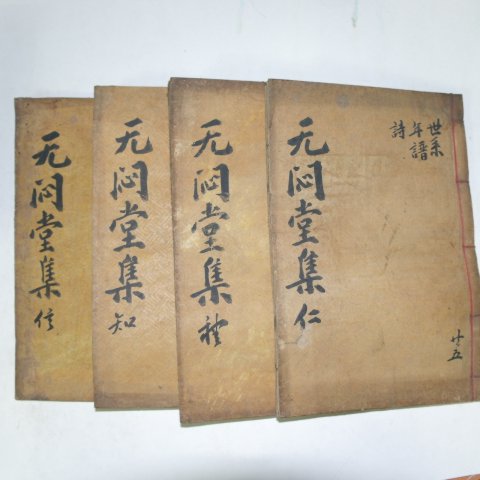 世系
年譜
詩
无悶堂集 仁
廿五
无悶堂集 礼
无悶堂集 知
无悶堂集 信